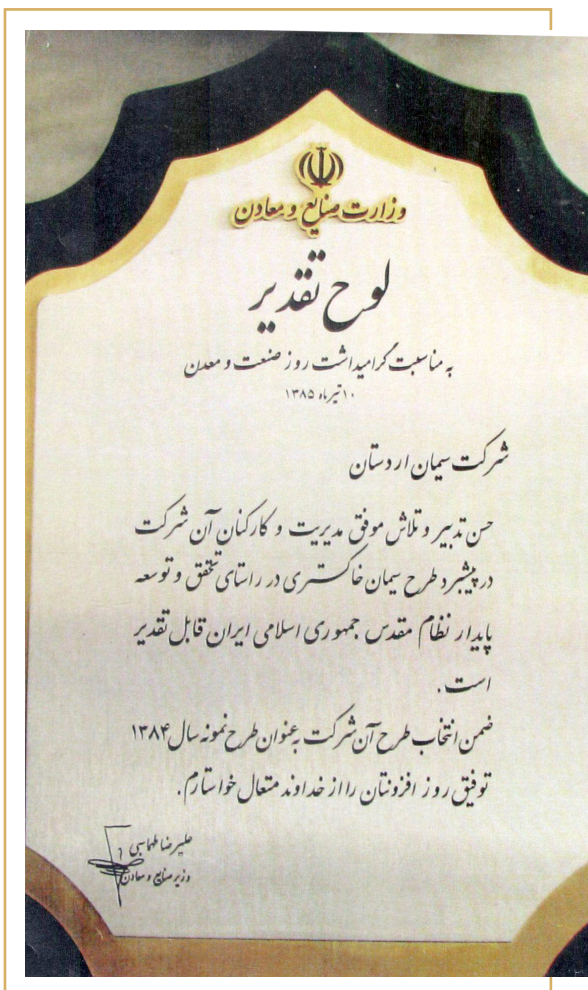 وزارت صنایع و معادن
لوح تقدیر
به مناسبت گرامیداشت روز صنعت و معدن
۱۰ تیرماه ۱۳۸۵
شرکت سیمان اردستان
حسن تدبیر و تلاش موفق مدیریت و کارکنان آن شرکت
در پیشبرد طرح سیمان خاکستری در راستای تحقق و توسعه
پایدار نظام مقدس جمهوری اسلامی ایران قابل تقدیر
است .
ضمن انتخاب طرح آن شرکت به عنوان طرح نمونه سال ۱۳۸۴
توفیق روز افزونتان را از خداوند متعال خواستارم .
علیرضا طهماسبی
وزیر صنایع و معادن